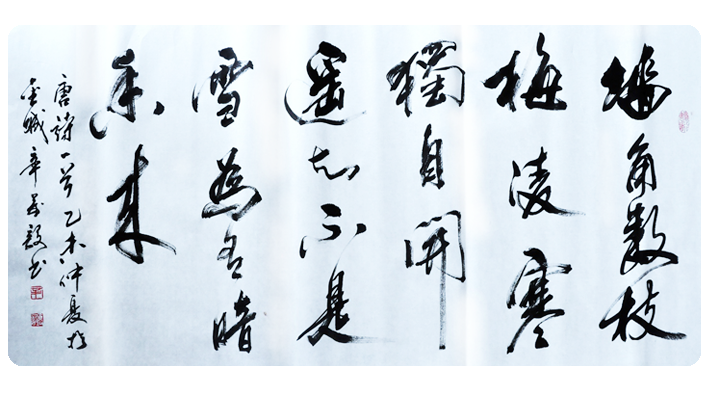 墙角数枝
梅凌寒
獨自開
遥知不是
雪為有暗
香来
唐詩一首乙未仲夏於
金城辛
书